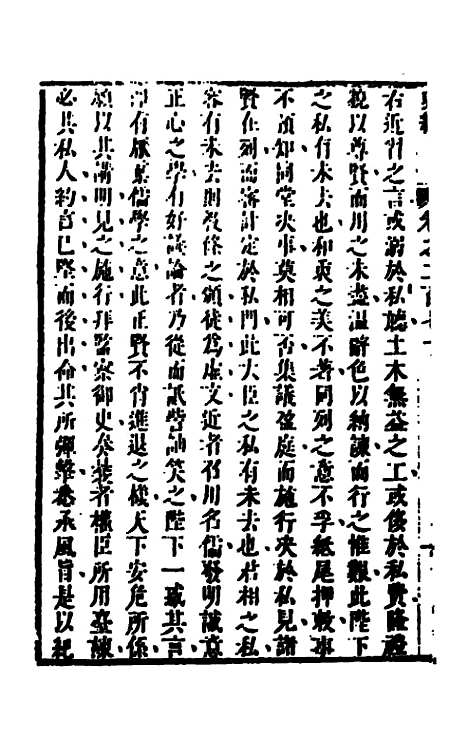 右近習之言或溺於私聽土木無益之工或侈於私費隆禮
貌以尊賢而用之未盡溫辭色以納諫而行之惟艱此陛下
之私有未去也和衷之美不著同列之意不孚紙尾押敕事
不預知同堂決事莫相可否集議盈庭而施行決於私見諸
賢在列而審計定於私門此大臣之私有未去也君相之私
容有未去則敎條之頒徒爲虛文近者召用名儒發明誠意
正心之學有好議論者乃從而詆訾訕笑之陛下一惑其言
卽有厭棄儒學之意此正賢不肖進退之機天下安危所係
願以其講明見之施行拜監察御史奏襲者權臣所用臺諫
必其私人約言已堅而後出命其所彈劾悉承風旨是以紀